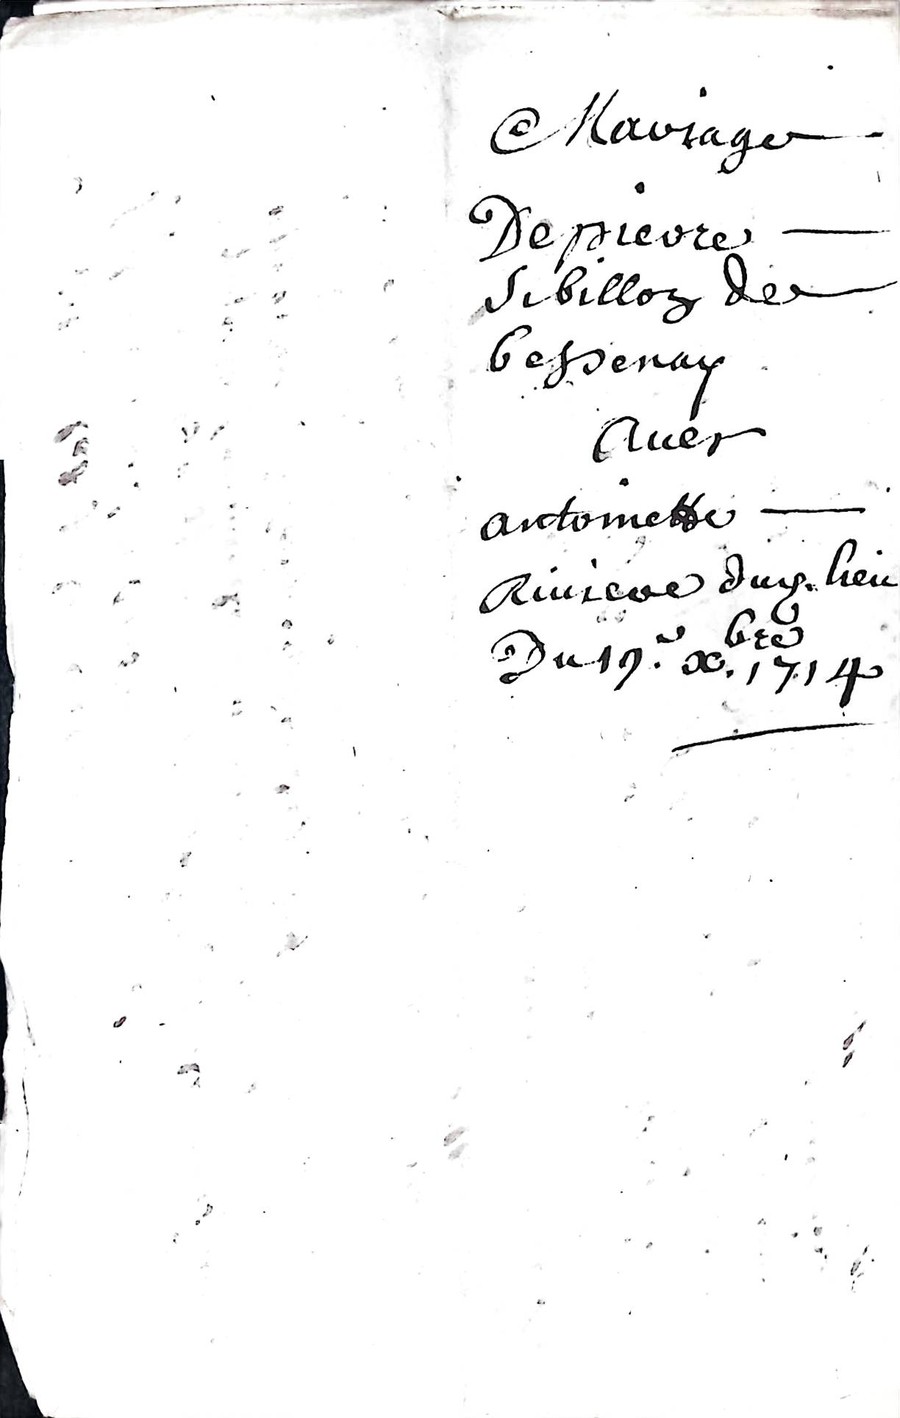 Mariage
De pierre
Sibillon de
bessenay
Avec
antoinette
Riviere dud. lieu
Du 19.e xbre 1714